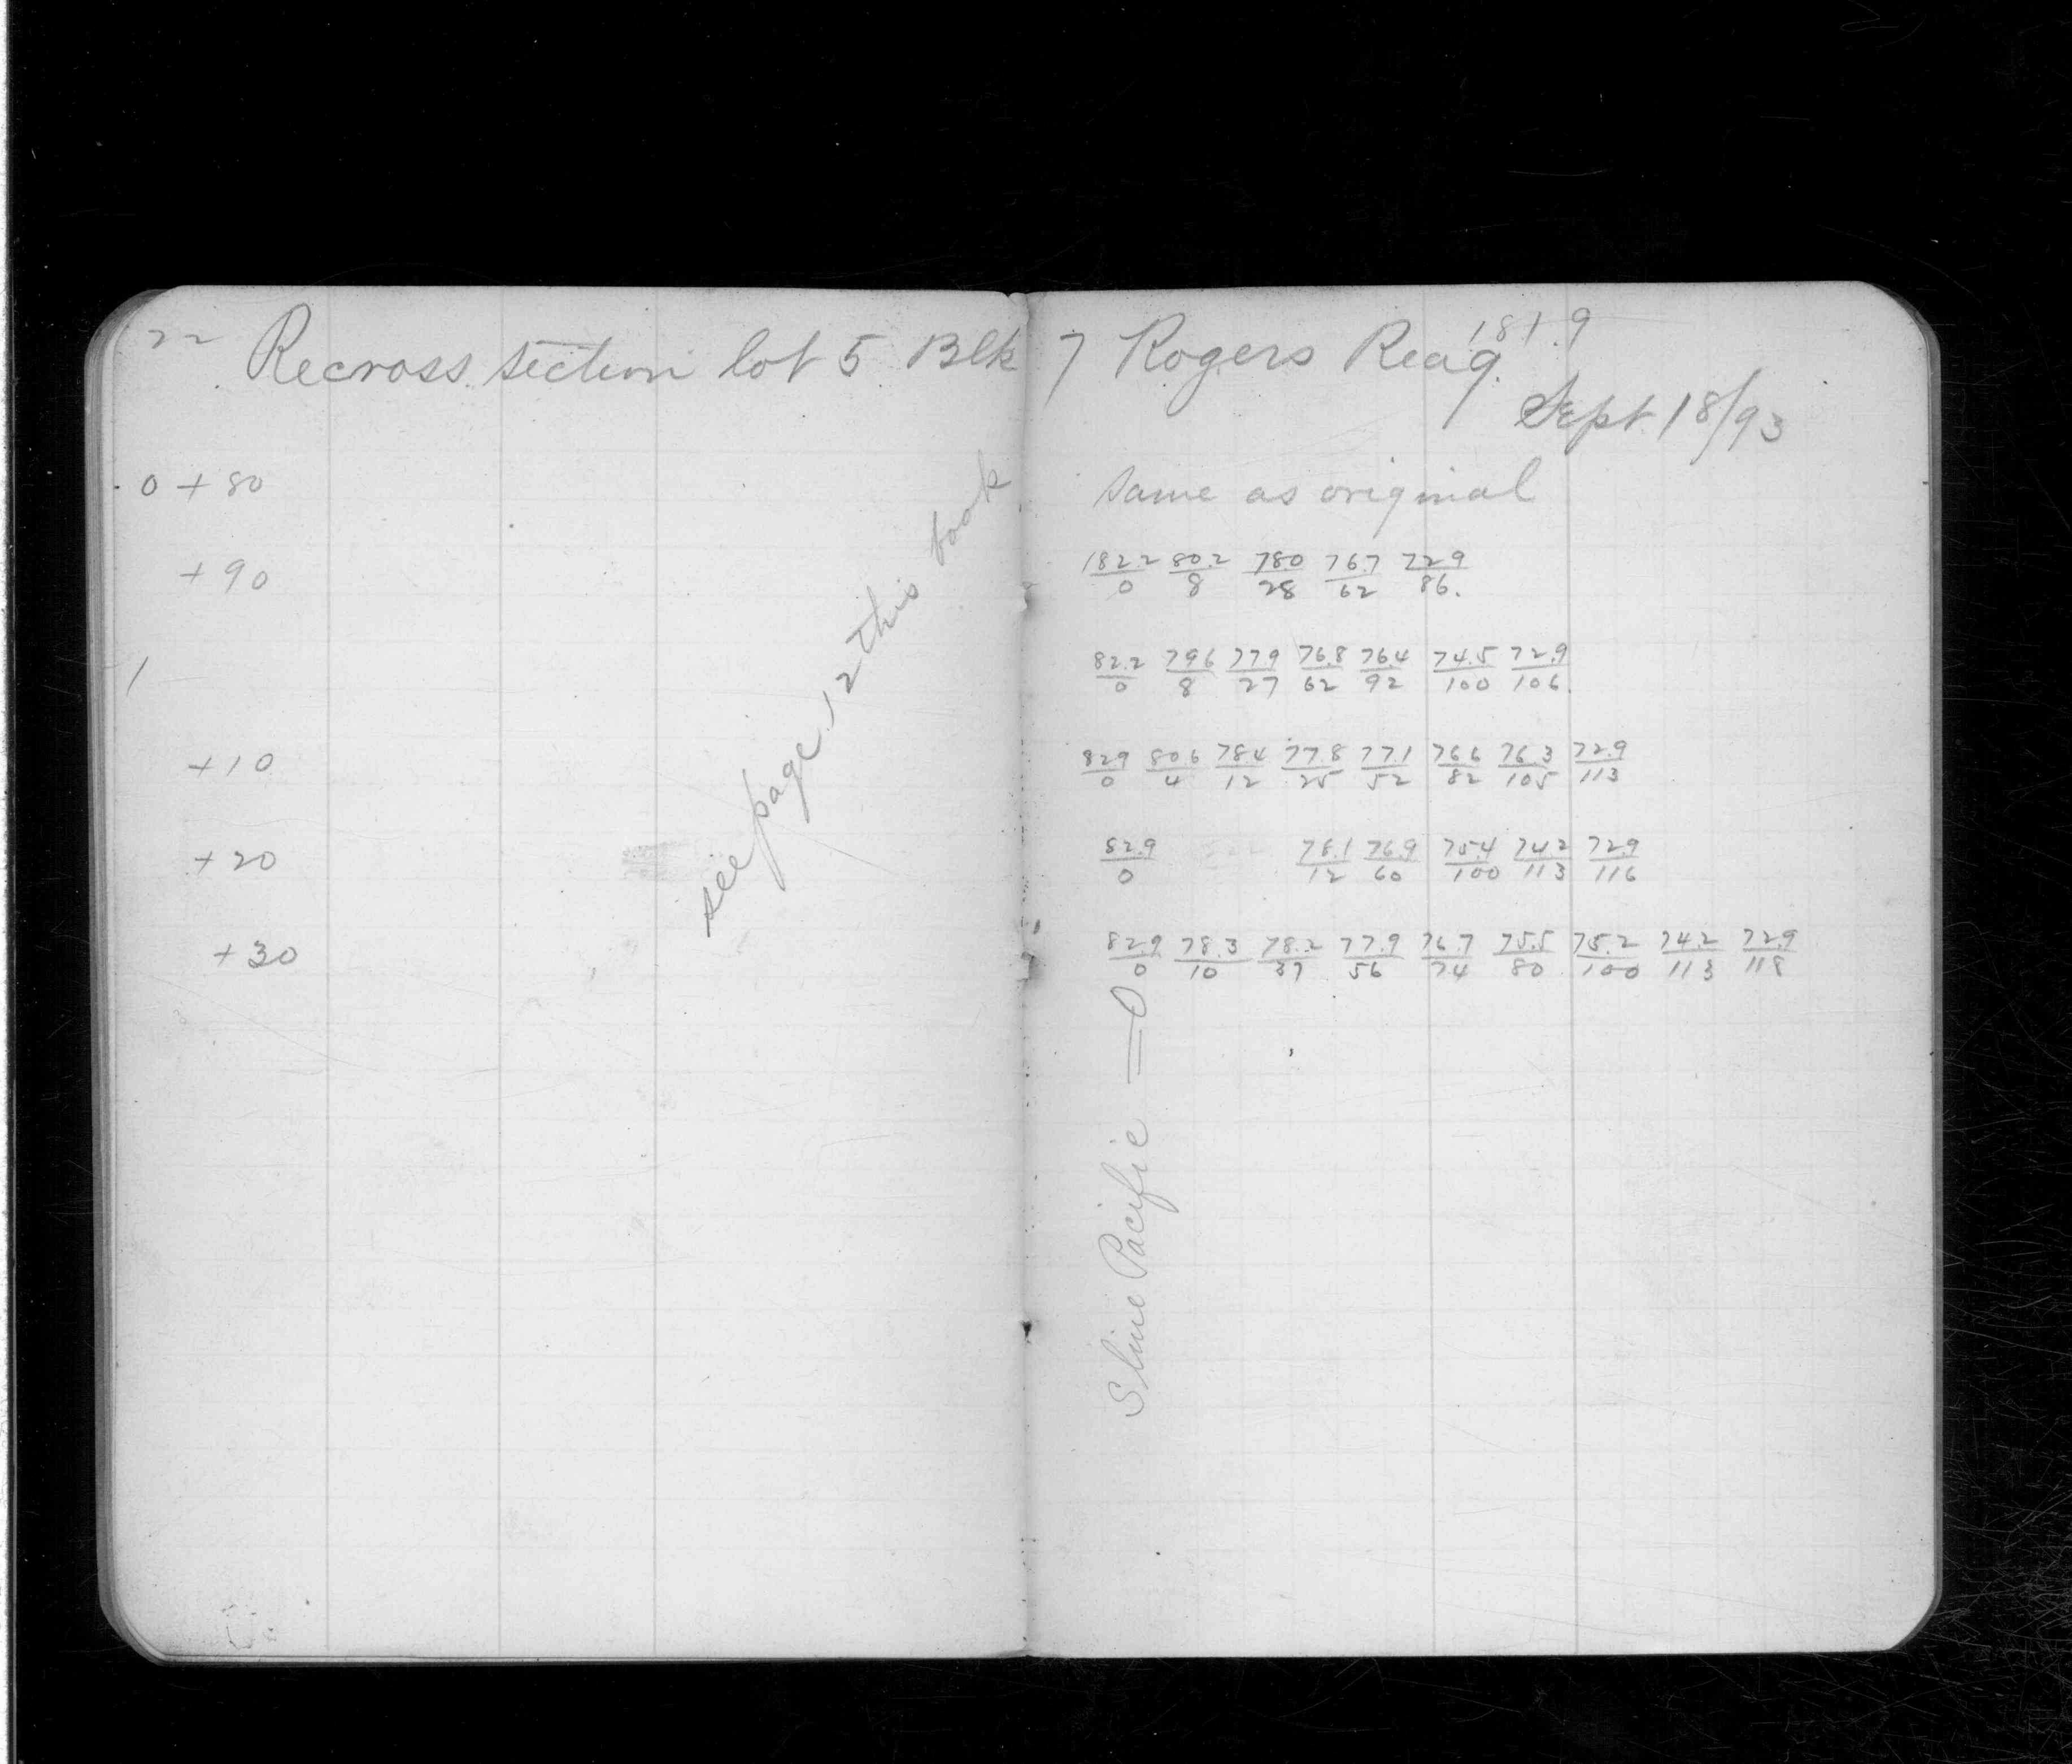 22 Recross section lot 5 Blk 7 Rogers Reaq. 181.9
Sept. 18/93
0 + 80 same as original
+ 90 182.2/0 80.2/8 78.0/28 76.7/62 72.9/86.
1 82.2/0 79.6/8 77.9/27 76.8/62 76.4/92 74.5/100 72.9/106.
+ 10 82.9/0 80.6/4 78.4/12 77.8/25 77.1/52 76.6/82 76.3/105 72.9/113
+ 20 82.9/0 78.1/12 76.9/60 75.4/100 74.2/113 72.9/116
+ 30 82.9/0 78.3/10 78.2/37 77.9/56 76.7/74 75.5/80 75.2/100 74.2/113 72.9/118
see page 12 this book
S line Pacific = 0